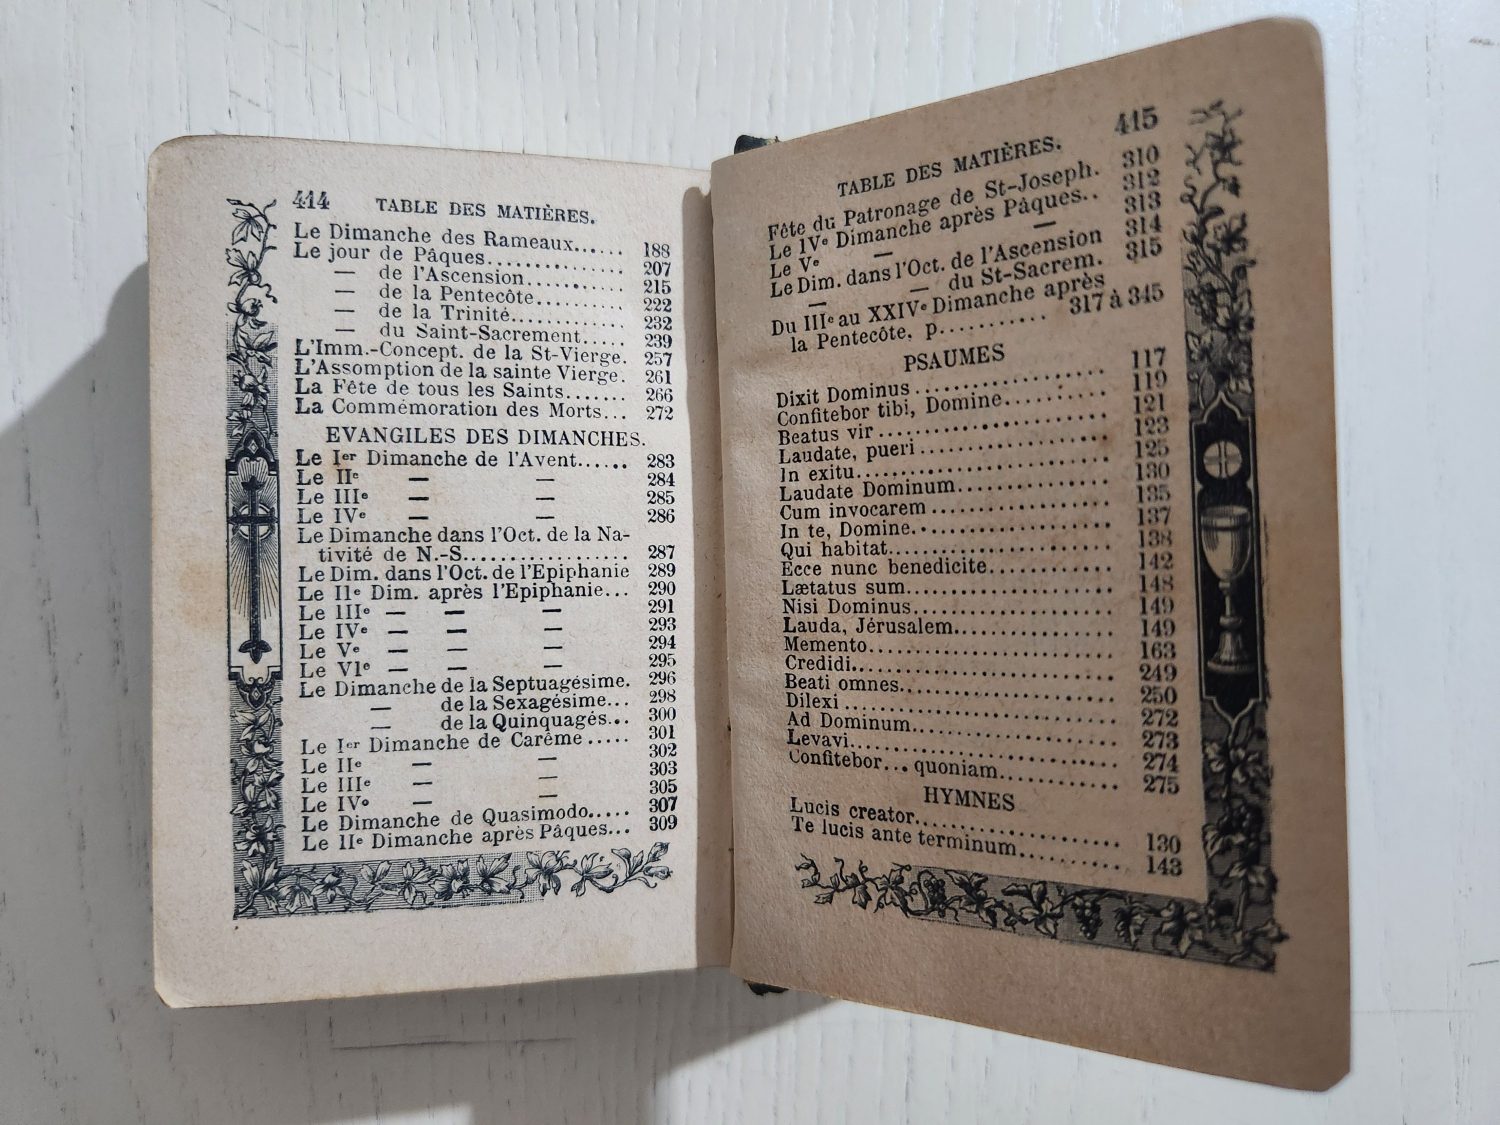 414 TABLE DES MATIÈRES.
Le Dimanche des Rameaux...... 188
Le jour de Pâques............... 207
— de l'Ascension........... 215
— de la Pentecôte.......... 222
— de la Trinité............. 232
— du Saint-Sacrement..... 239
L'Imm.-Concept. de la St-Vierge. 257
L'Assomption de la sainte Vierge. 261
La Fête de tous les Saints....... 266
La Commémoration des Morts... 272
EVANGILES DES DIMANCHES.
Le Ier Dimanche de l'Avent...... 283
Le IIe — — 284
Le IIIe — — 285
Le IVe — — 286
Le Dimanche dans l'Oct. de la Na-
tivité de N.-S.................. 287
Le Dim. dans l'Oct. de l'Epiphanie 289
Le IIe Dim. après l'Epiphanie... 290
Le IIIe — — — 291
Le IVe — — — 293
Le Ve — — — 294
Le VIe — — — 295
Le Dimanche de la Septuagésime. 296
— de la Sexagésime... 298
— de la Quinquagés... 300
Le Ier Dimanche de Carême ..... 301
Le IIe — — 302
Le IIIe — — 303
Le IVe — — 305
Le Dimanche de Quasimodo..... 307
Le IIe Dimanche après Pâques... 309
TABLE DES MATIÈRES. 415
Fête du Patronage de St-Joseph. 310
Le IVe Dimanche après Pâques.. 312
Le Ve — — 313
Le Dim. dans l'Oct. de l'Ascension 314
— — du St-Sacrem. 315
Du IIIe au XXIVe Dimanche après
la Pentecôte, p........... 317 à 345
PSAUMES
Dixit Dominus................... 117
Confitebor tibi, Domine.......... 119
Beatus vir...................... 121
Laudate, pueri.................. 123
In exitu........................ 125
Laudate Dominum............... 130
Cum invocarem................. 135
In te, Domine................... 137
Qui habitat..................... 138
Ecce nunc benedicite............ 142
Lætatus sum.................... 148
Nisi Dominus................... 149
Lauda, Jérusalem............... 149
Memento....................... 163
Credidi......................... 249
Beati omnes.................... 250
Dilexi.......................... 272
Ad Dominum................... 273
Levavi.......................... 274
Confitebor... quoniam........... 275
HYMNES
Lucis creator.................... 130
Te lucis ante terminum.......... 143